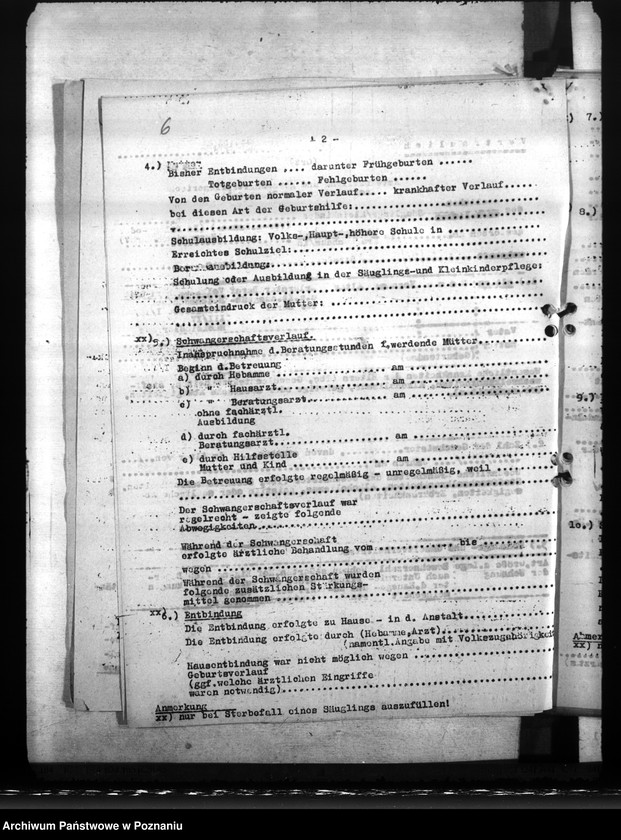 6
- 2 -
4.) Mutter
Bisher Entbindungen .... darunter Frühgeburten ......
Totgeburten ...... Fehlgeburten ......
Von den Geburten normaler Verlauf..... krankhafter Verlauf.....
bei diesen Art der Geburtshilfe:
Schulausbildung: Volks-,Haupt-,höhere Schule in
Erreichtes Schulziel:
Berufsausbildung:
Schulung oder Ausbildung in der Säuglings-und Kleinkinderpflege:
Gesamteindruck der Mutter:
xx) 5.) Schwangerschaftsverlauf.
Inanspruchnahme d.Beratungsstunden f.werdende Mütter
Beginn d.Betreuung
a) durch Hebamme .......... am
b) " Hausarzt.......... am
c) " Beratungsarzt.......... am
ohne fachärztl.
Ausbildung
d) durch fachärztl.
Beratungsarzt.......... am
e) durch Hilfsstelle
Mutter und Kind .......... am
Die Betreuung erfolgte regelmäßig - unregelmäßig, weil
Der Schwangerschaftsverlauf war
regelrecht - zeigte folgende
Abwegigkeiten
Während der Schwangerschaft
erfolgte ärztliche Behandlung vom .......... bis
wegen
Während der Schwangerschaft wurden
folgende zusätzlichen Stärkungs-
mittel genommen
xx) 6.) Entbindung
Die Entbindung erfolgte zu Hause - in d. Anstalt
Die Entbindung erfolgte durch (Hebamme,Arzt)
(namentl.Angabe mit Volkszugehörigkeit
Hausentbindung war nicht möglich wegen
Geburtsverlauf
(ggf.welche ärztlichen Eingriffe
waren notwendig)
Anmerkung
xx) nur bei Sterbefall eines Säuglings auszufüllen!
7.)
8.)
9.)
10.)
xx)
Archiwum Państwowe w Poznaniu